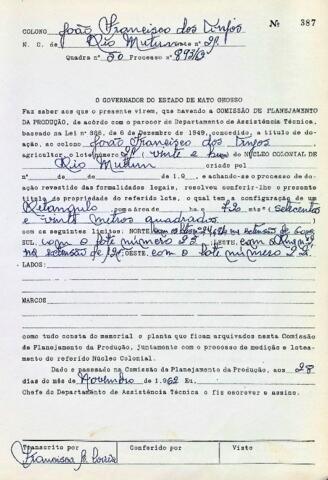 № 387
COLONO João Francisco dos Anjos
N. C. de Rio Mutum lote nº 21
Quadra nº 50 Processo nº 893/63
O GOVERNADOR DO ESTADO DE MATO GROSSO
Faz saber aos que o presente virem, que havendo a COMISSÃO DE PLANEJAMENTO
DA PRODUÇÃO, de acôrdo com o parecer do Departamento de Assistência Técnica,
baseado na Lei nº 336, de 6 de Dezembro de 1949, concedido, a título de do-
ação, ao colono João Francisco dos Anjos
agricultor o lote número 21 vinte e hum do NÚCLEO COLONIAL DE
Rio Mutum criado pol
nº de de de 1.9 e achando-se o processo de do-
ação revestido das formalidades legais, resolveu conferir-lhe o presente
título de propriedade do referido lote, o qual tem a configuração de um
Retangulo com a área de ha e 720 ms² (setecentos
e vinte metros quadrados
com os seguintes limites: NORTE na extensão de
SUL com o lote número 23 LESTE com
na extensão de OESTE com o lote número 22.
LADOS:
MARCOS
como tudo consta do memorial e planta que ficam arquivados nesta Comissão
de Planejamento da Produção, juntamente com o processo de medição e lotea-
mento do referido Núcleo Colonial.
Dado e passado na Comissão de Planejamento da Produção, aos 28
dias do mês de Novembro de 1.962 Eu.
Chefe do Departamento de Assistência Técnica o fiz escrever e assino.
Transcrito por Conferido por Visto
Francisca